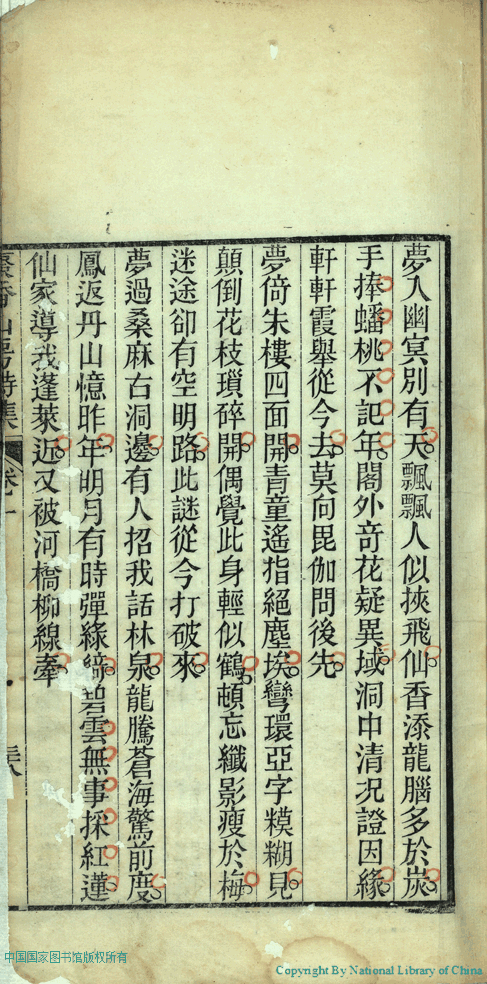 夢入幽冥別有天飄飄人似挾飛仙香添龍腦多於炭
手捧蟠桃不記年閣外奇花疑異域洞中清況證因緣
軒軒霞舉從今去莫向毘伽問後先
夢倚朱樓四面開青童遙指絕塵埃彎環亞字模糊見
顛倒花枝瑣碎開偶覺此身輕似鶴頓忘纖影瘦於梅
迷途卻有空明路此謎從今打破來
夢過桑麻古洞邊有人招我話林泉龍騰蒼海驚前度
鳳返丹山憶昨年明月有時彈綠綺碧雲無事採紅蓮
仙家導我蓬萊近又被河橋柳線牽
香山房詩集 卷一
中国国家图书馆版权所有
Copyright By National Library of China